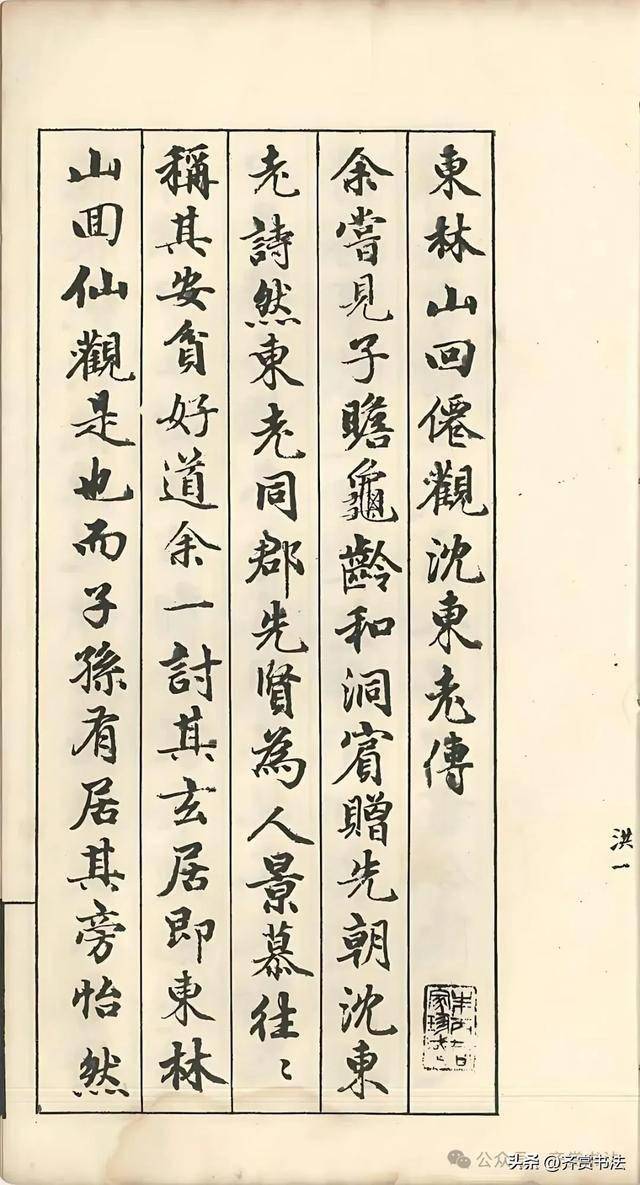 東林山回僊觀沈東老傳
余嘗見子瞻龜齡和洞賓贈先朝沈東
老詩然東老同郡先賢為人景慕往〻
稱其安貧好道余一討其玄居即東林
山回仙觀是也而子孫有居其旁怡然
洪一
头条 @齐赏书法